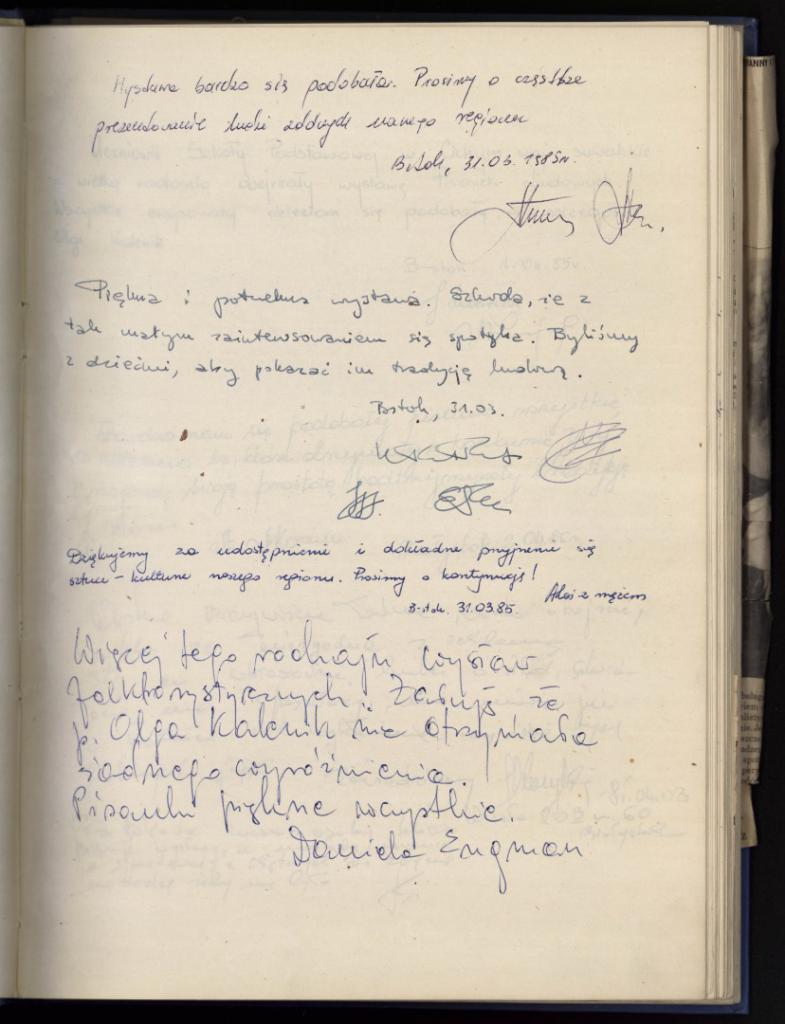 Wystawa bardzo się podobała. Prosimy o częstsze
prezentowanie ludzi naszego regionu
B-stok, 31.03.1985r.
Piękna i potrzebna wystawa. Szkoda, że z
tak małym zainteresowaniem się spotyka. Byliśmy
z dziećmi, aby pokazać im tradycję ludową.
B-stok, 31.03.
Dziękujemy za udostępnienie i dokładne przyjrzenie się
sztuce - kulturze naszego regionu. Prosimy o kontynuację!
Alas z mężem
B-stok. 31.03.85
Więcej tego rodzaju wystaw
folklorystycznych. Żałuję że
p. Olga Kalenik nie otrzymała
żadnego wyróżnienia.
Pisanki piękne wszystkie.
Daniela Engman